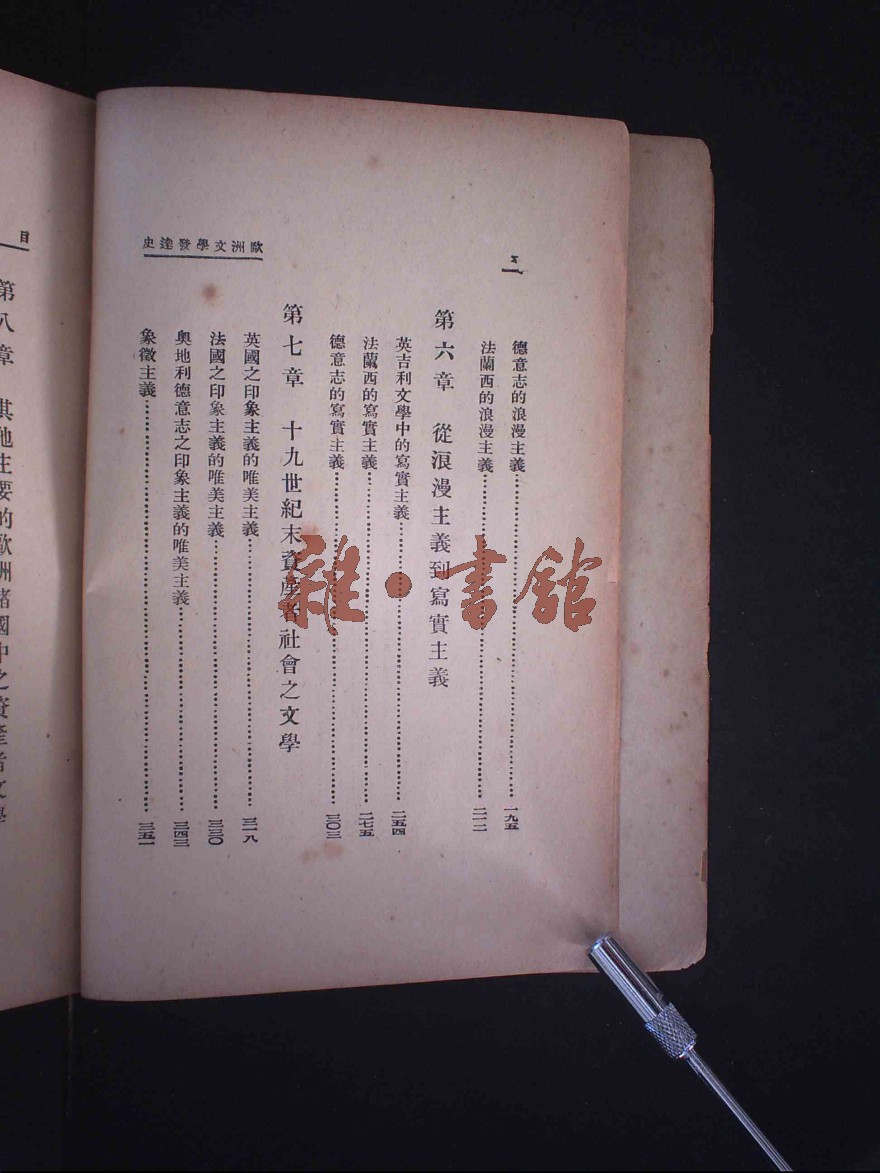 歐洲文學發達史
德意志的浪漫主義……一九五
法蘭西的浪漫主義……二一二
第六章 從浪漫主義到寫實主義
英吉利文學中的寫實主義……二五四
法蘭西的寫實主義……二七五
德意志的寫實主義……三〇三
第七章 十九世紀末資產者社會之文學
英國之印象主義的唯美主義……三一八
法國之印象主義的唯美主義……三三〇
奧地利德意志之印象主義的唯美主義……三四三
象徵主義……三五一
目
第八章 其他主要的歐洲諸國中之資產者文學
雜·書館